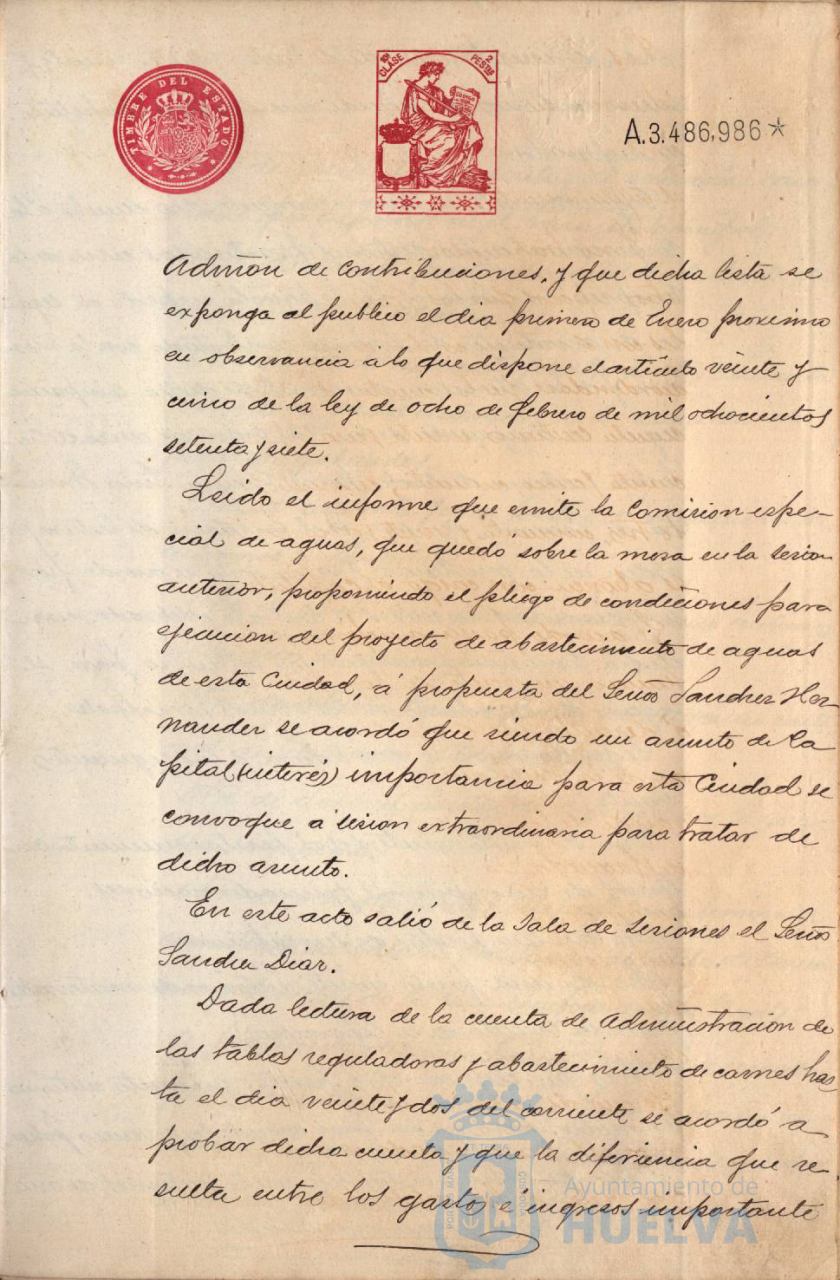 TIMBRE DEL ESTADO
10ª CLASE
2 PESTAS
A.3.486,986*
Admñon de Contribuciones, y que dicha lista se
exponga al publico el dia primero de Enero proximo
en observancia á lo que dispone el articulo veinte y
cinco de la ley de ocho de febrero de mil ochocientos
setenta y siete.
Leido el informe que emite la Comision espe-
cial de aguas, que quedó sobre la mesa en la sesion
anterior, proponiendo el pliego de condiciones para
ejecucion del proyecto de abastecimiento de aguas
de esta Ciudad, á propuesta del Señor Sanchez Her-
nandez se acordó que siendo un asunto de Ca
pital (interés) importancia para esta Ciudad se
convoque á sesion extraordinaria para tratar de
dicho asunto.
En este acto salió de la Sala de Sesiones el Señor
Sanchez Diaz.
Dada lectura de la cuenta de Administracion de
las tablas reguladoras y abastecimiento de carnes has
ta el dia veinte y dos del corriente se acordó a-
probar dicha cuenta y que la diferiencia que re-
sulta entre los gastos é ingresos importante
Ayuntamiento de
HUELVA